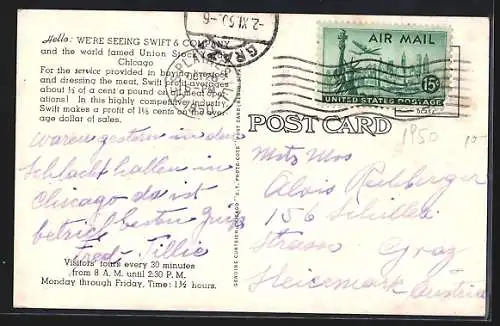 Hello: WE'RE SEEING SWIFT & COMPANY
and the world famed Union Stock
Chicago
For the service provided in buying
and dressing the meat, Swift profit averages
about ½ of a cent a pound
ations! In this highly competitive industry
Swift makes a profit of 1½ cents on the aver-
age dollar of sales.
waren gestern in den
Schlachthallen in
Chicago da ist
betrieb besten Gruß
Fred - Tillie
Visitors' tours every 30 minutes
from 8 A.M. until 2:30 P.M.
Monday through Friday, Time: 1½ hours.
GENUINE CURTEICH-CHICAGO
-2.XI.50.-6
GRAZ
AIR MAIL
15¢
UNITED STATES POSTAGE
POST CARD
1950
10-
Alois
156 Schiller
Strasse Graz
Steiermark Austria